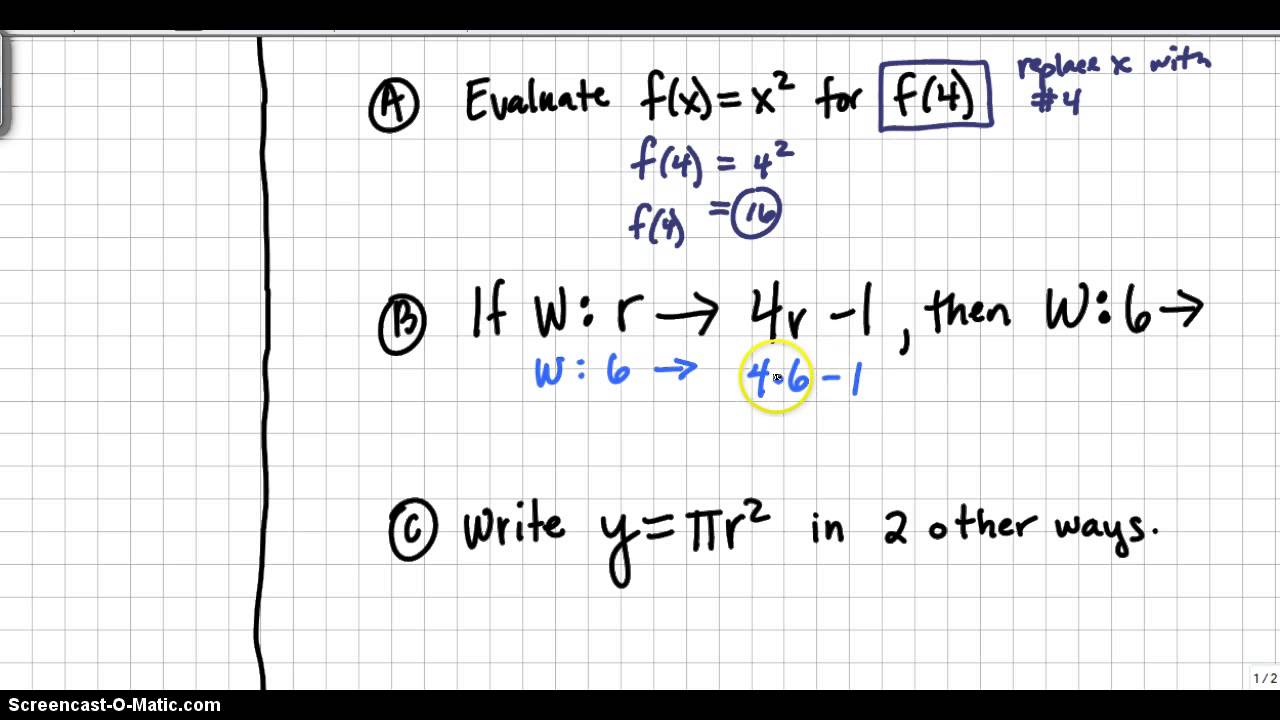 Ⓐ Evaluate f(x) = x² for f(4) replace x with
#4
f(4) = 4²
f(4) = 16
Ⓑ If W: r → 4r - 1, then W: 6 →
W: 6 → 4·6 - 1
Ⓒ Write y = πr² in 2 other ways.
1/2
Screencast-O-Matic.com